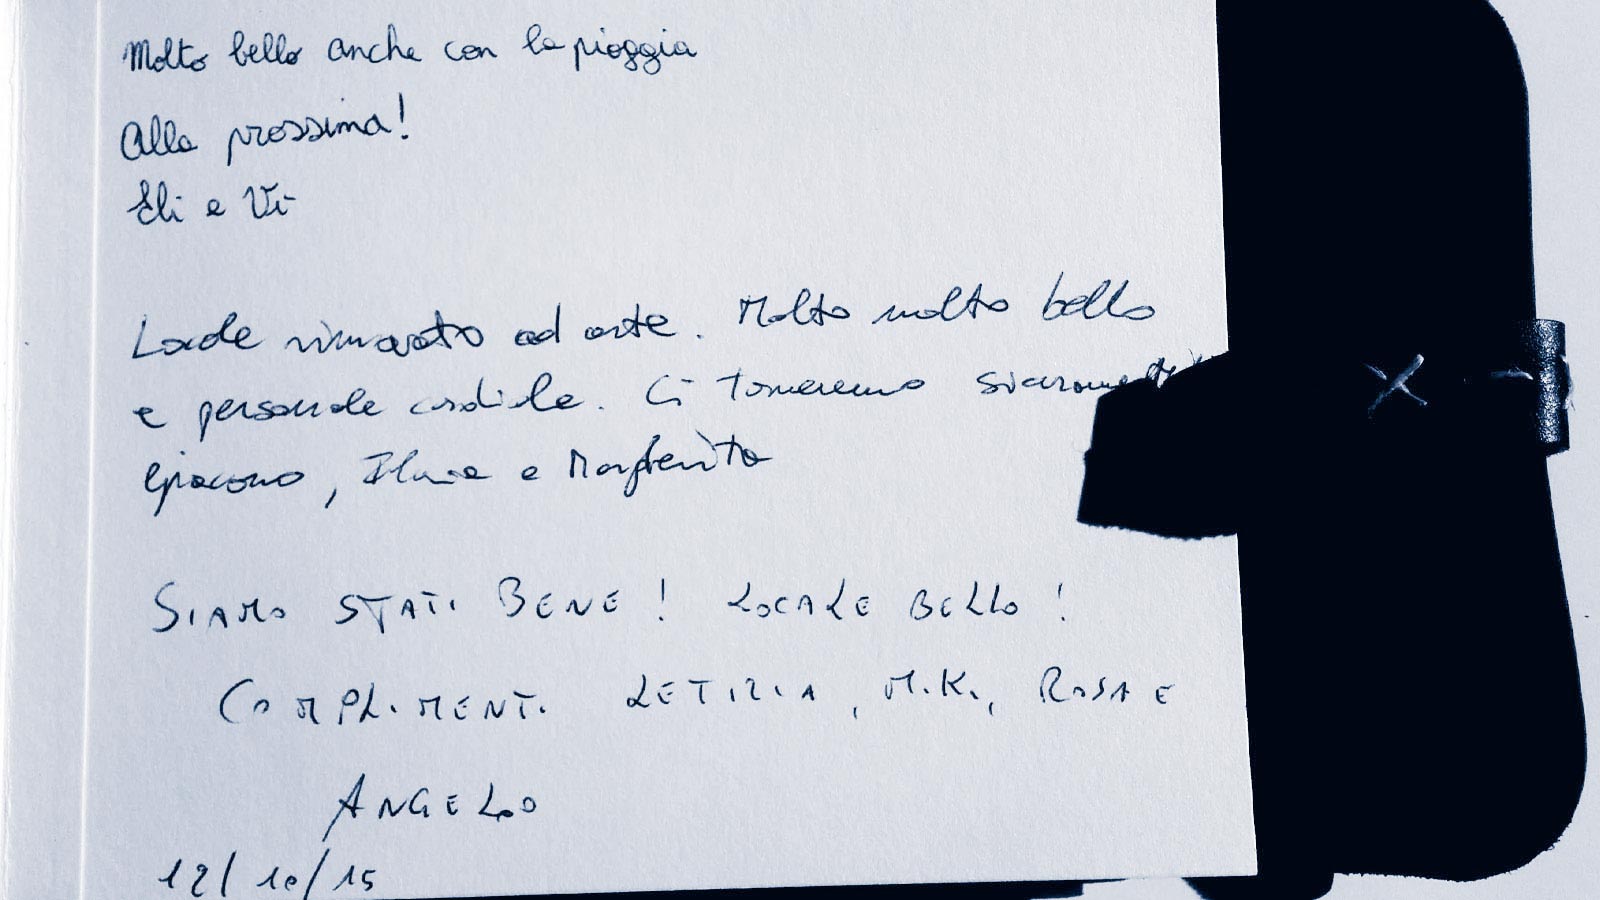 Molto bello anche con la pioggia
Alla prossima!
Eli e Vi
Locale rinnovato ad arte. Molto molto bello
e personale cordiale. Ci torneremo sicuramente
Giacomo, Ilaria e Margherita
SIAMO STATI BENE! LOCALE BELLO!
COMPLIMENTI LETIZIA, M.K., ROSA E
ANGELO
12/10/15